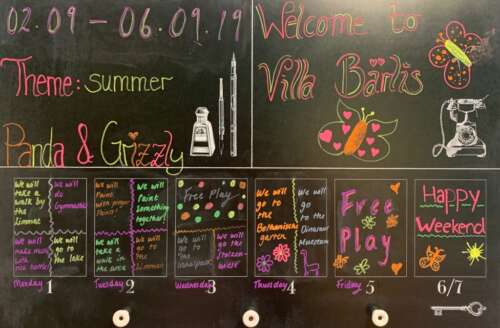 02.09 - 06.09.19
Theme: summer
Panda & Grizzly
Welcome to
Villa Bärlis
We will
take a
walk by
the
Limmat
We will
do
Gymnastic
We will
go to the lake
Monday 1
We will
Paint
We will
Paint
something
together!
We will
take a
walk in
the wood
We will
go to the
Limmat
Tuesday 2
Free Play
We will
go to
We will
go the
Wednesday 3
We will
go to
the
Bothanischer
garten
We will
go
to the
Dinosaur
Museum
Thursday 4
Free
Play
Friday 5
Happy
Weekend
6/7